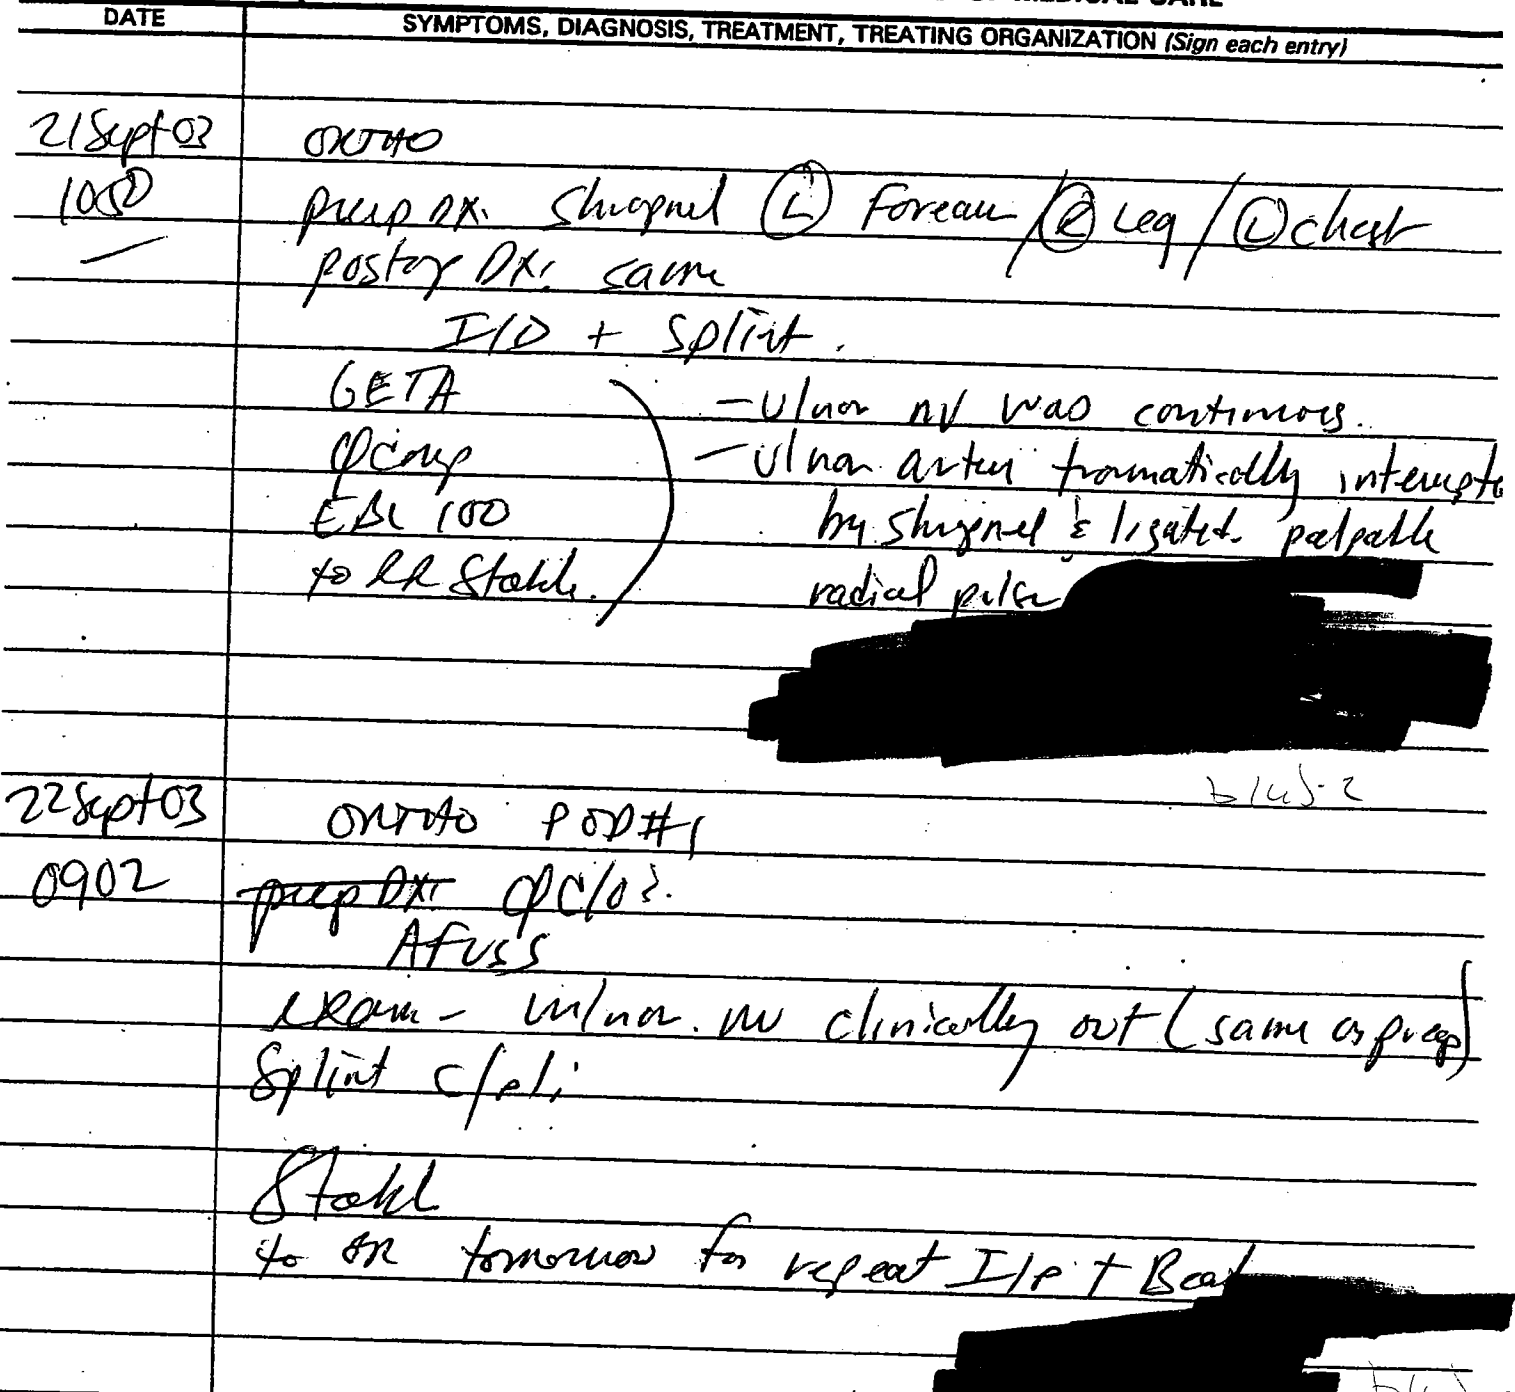 MEDICAL CARE
DATE
SYMPTOMS, DIAGNOSIS, TREATMENT, TREATING ORGANIZATION (Sign each entry)
21 Sept 03 ORTHO
preop DX: Shrapnel (L) Forearm / (R) Leg / (L) chest
postop DX: same
I/D + Splint.
GETA - Ulnar nv was continuous.
∅ comp - Ulnar artery traumatically interrupte
EBL 100 by shrapnel & ligated. palpable
to RR Stable. radial pulse
b(6)-2
22 Sept 03 ORTHO POD#1
0902 preop DX: ∅ c/o
AFVSS
exam - ulnar nv clinically out (same as preop)
Splint c/d/i
Stable
to OR tomorrow for repeat I/D +